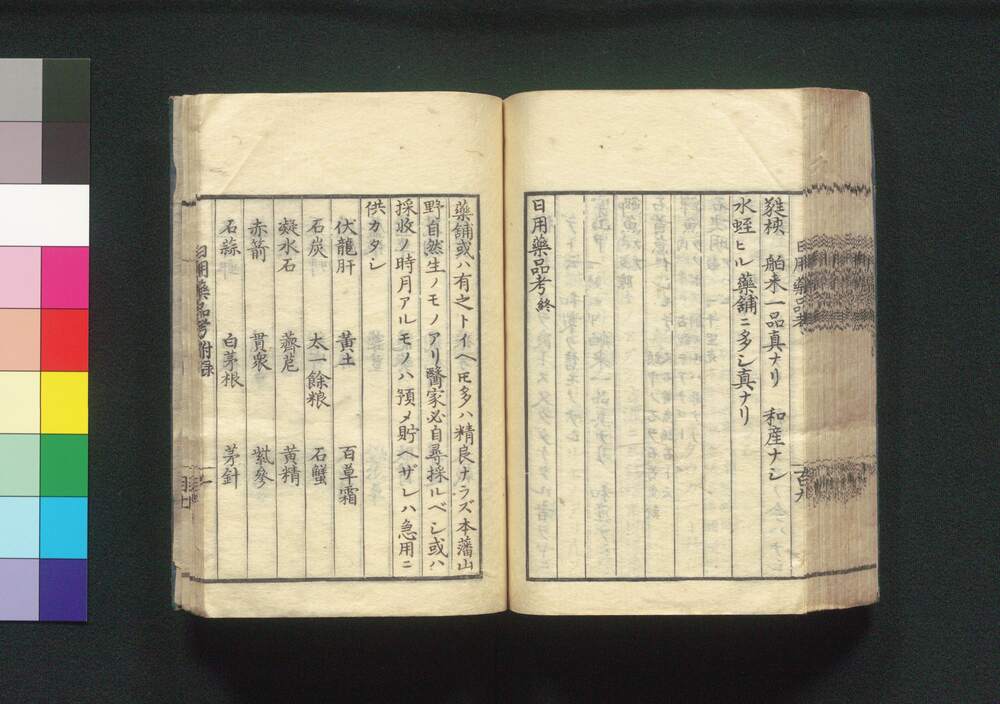 㲉𣘺 舶来一品真ナリ 和産ナシ
水蛭ヒル薬舗ニ多シ真ナリ
日用藥品考終
日用藥品考
百九
藥舗或ハ有之トイヘ𪜈多ハ精良ナラズ本藩山
野自然生ノモノアリ醫家必自尋採ルベシ或ハ
採收ノ時月アルモノハ預メ貯ヘザレハ急用ニ
供カタシ
伏龍肝 黄土 百草霜
石炭 太一餘粮 石蟹
凝水石 薺苨 黄精
赤箭 貫衆 紫參
石蒜 白茅根 茅針
日用藥品考附録